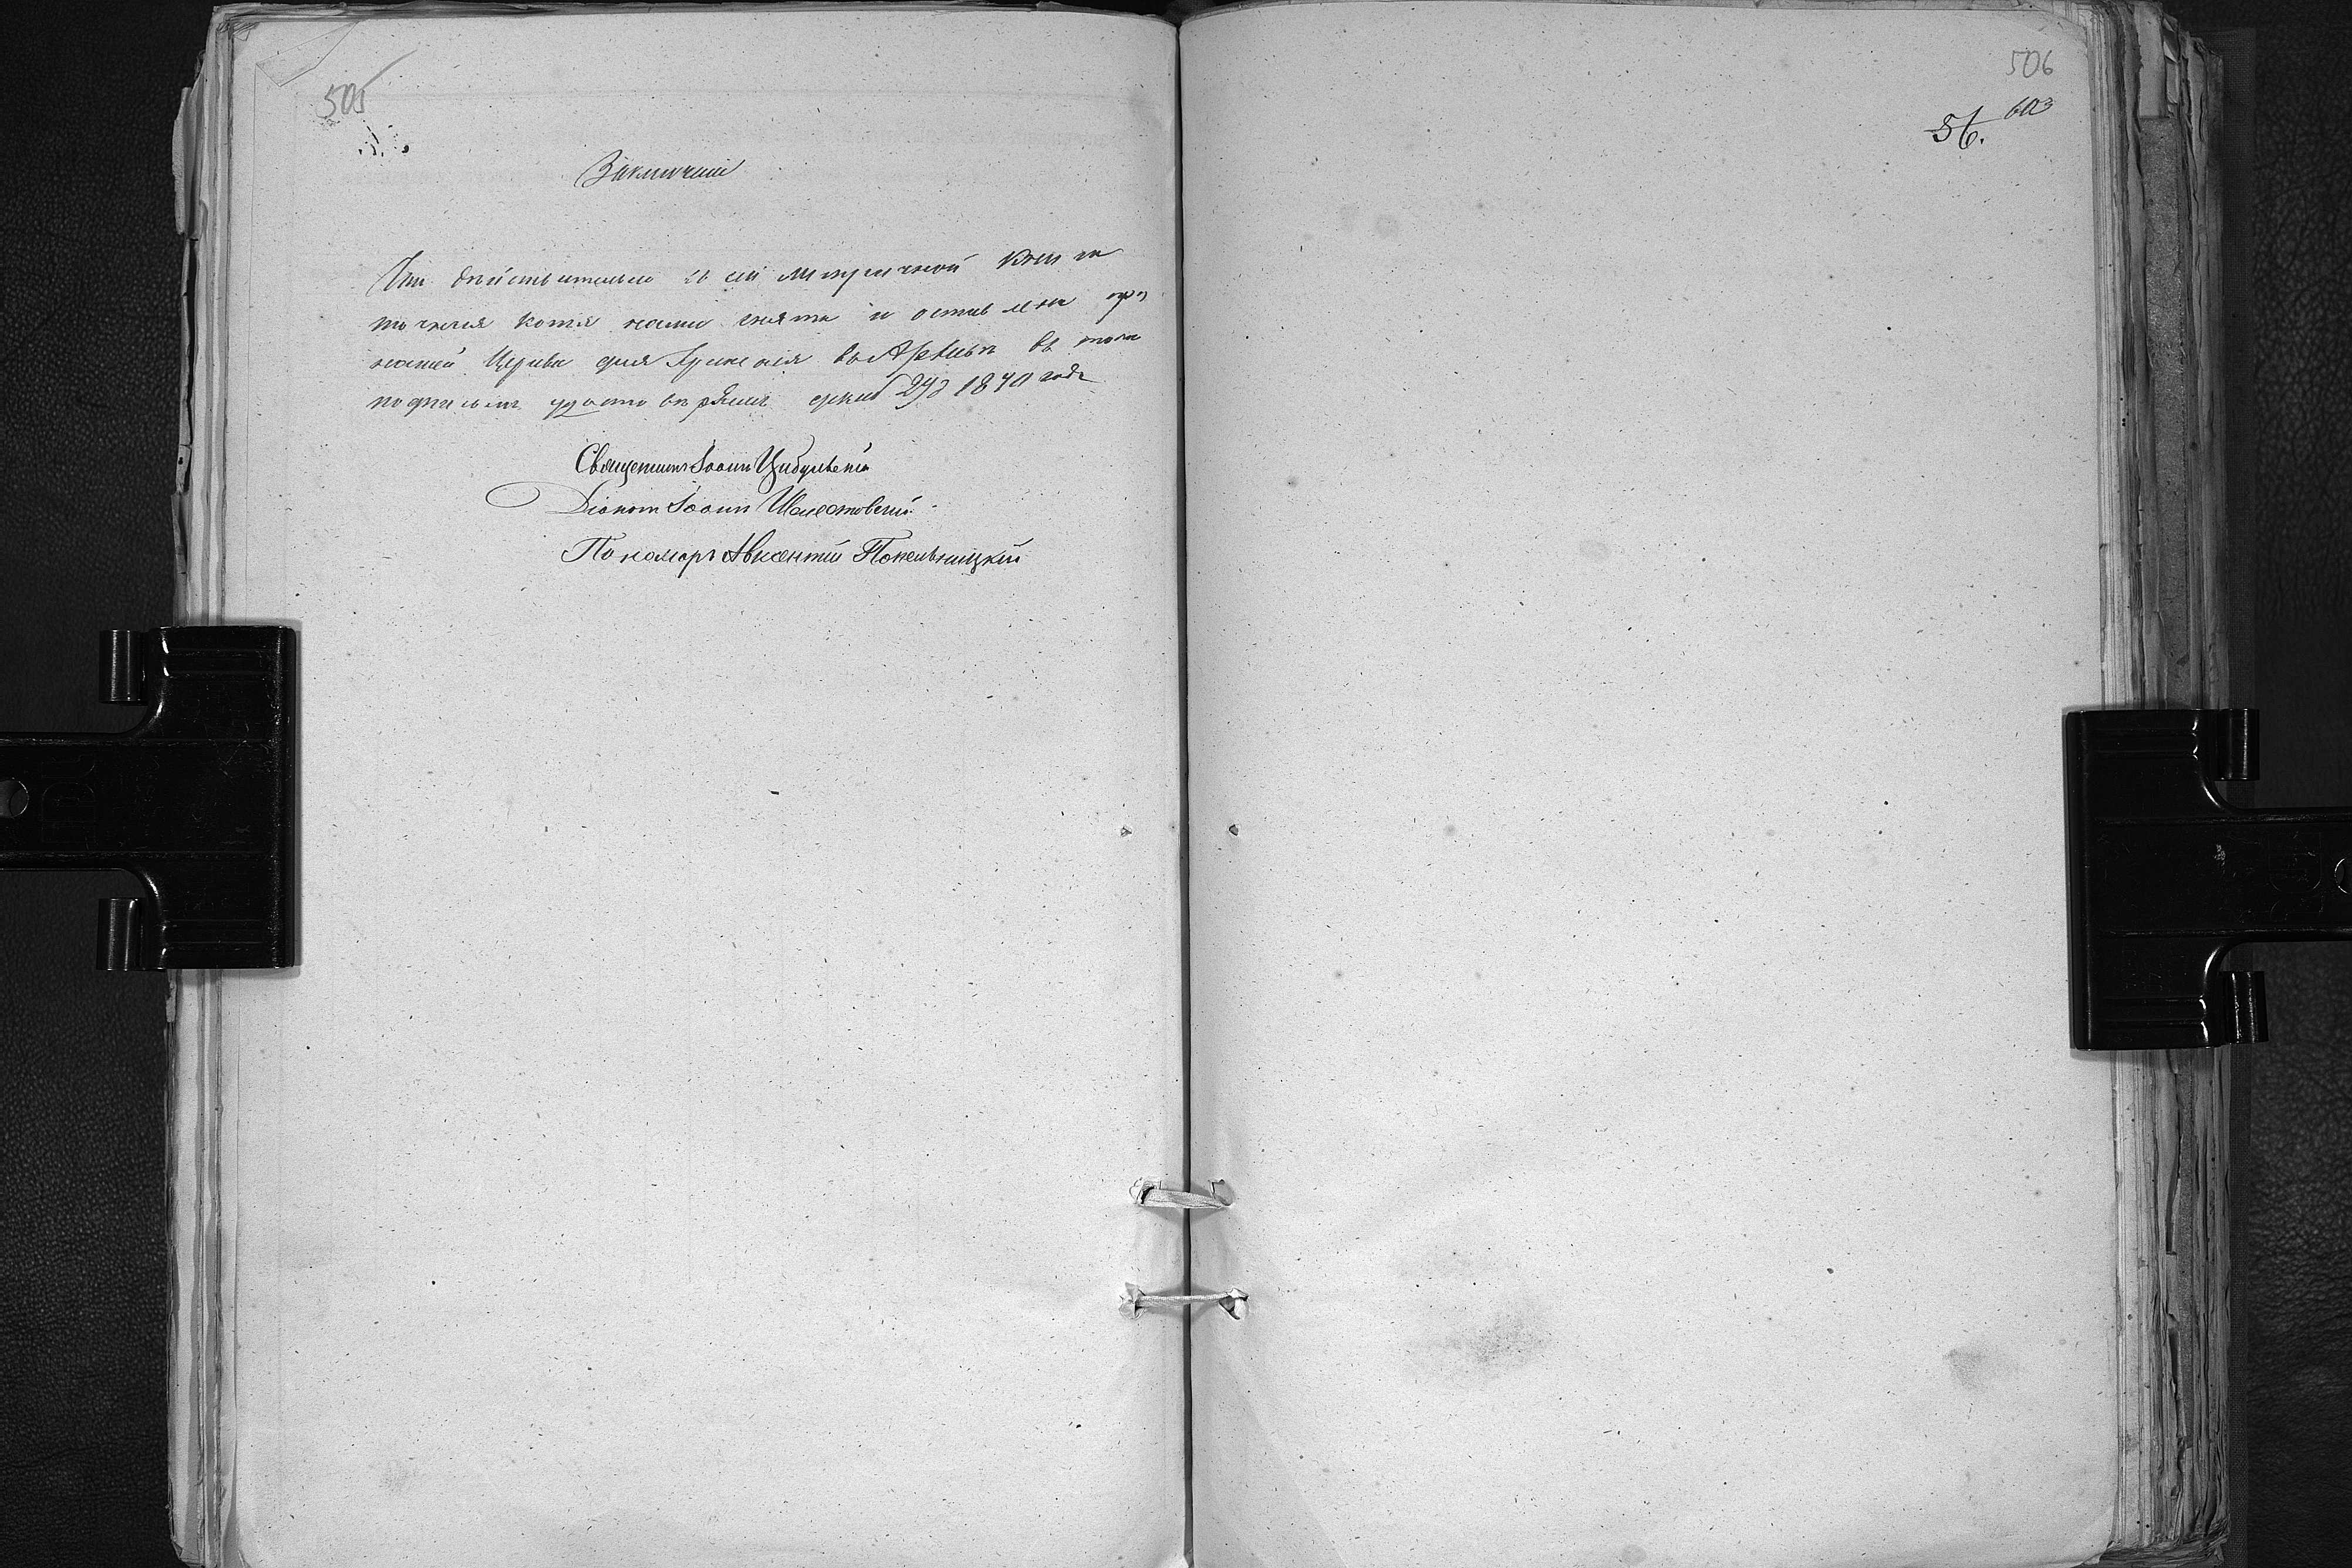 505
Заключеніе
Что действительно съ сей метричной книги
точная копія нами снята и оставлена при
нашей Церкви для храненія въ Архивѣ въ томъ
подписомъ удостовѣряемъ 1840 года
Священникъ Іоаннъ Цибульскій
Діаконъ Іоаннъ
Пономарь Авксентій Покельницкій
506
56. 603